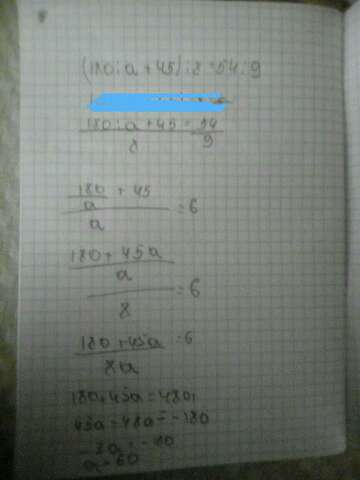 (180:a + 45):8 = 54:9
180:a + 45 = 54
8 9
180 + 45
a
a = 6
180 + 45a
a
8 = 6
180 + 45a = 6
8a
180 + 45a = 48a
45a - 48a = -180
-3a = -180
a = 60